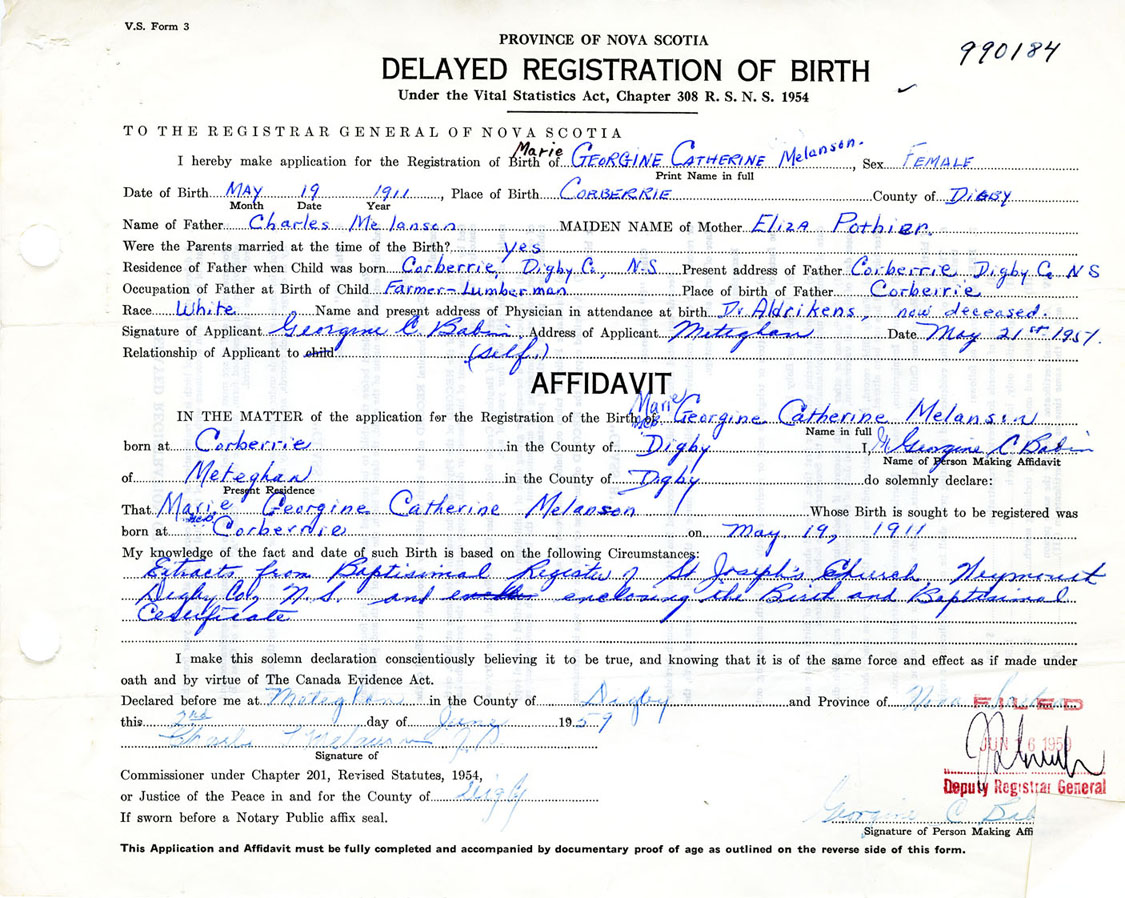 V.S. Form 3
PROVINCE OF NOVA SCOTIA
990184
DELAYED REGISTRATION OF BIRTH
Under the Vital Statistics Act, Chapter 308 R. S. N. S. 1954
TO THE REGISTRAR GENERAL OF NOVA SCOTIA
I hereby make application for the Registration of Birth of Marie GEORGINE CATHERINE Melanson. , Sex FEMALE
Print Name in full
Date of Birth MAY 19 1911 , Place of Birth CORBERRIE County of DIGBY
Month Date Year
Name of Father Charles Melanson MAIDEN NAME of Mother ELIZA Pothier.
Were the Parents married at the time of the Birth? yes
Residence of Father when Child was born Corberrie, Digby Co, N.S Present address of Father Corberrie Digby Co NS
Occupation of Father at Birth of Child Farmer-Lumberman Place of birth of Father Corberrie
Race White Name and present address of Physician in attendance at birth Dr Aldrikens, now deceased.
Signature of Applicant Georgine C Babin Address of Applicant Meteghan Date May 21st 1957.
Relationship of Applicant to child (self.)
AFFIDAVIT
IN THE MATTER of the application for the Registration of the Birth of Marie Georgine Catherine Melanson
Name in full
born at Corberrie in the County of Digby I, Georgine C Babin
Name of Person Making Affidavit
of Meteghan in the County of Digby do solemnly declare:
Present Residence
That Marie Georgine Catherine Melanson Whose Birth is sought to be registered was
born at Corberrie on May 19, 1911
My knowledge of the fact and date of such Birth is based on the following Circumstances:
Extracts from Baptisimal Register of St Joseph's Church, Weymouth
Digby Co, N.S. and enclosing the Birth and Baptisimal
Certificate
I make this solemn declaration conscientiously believing it to be true, and knowing that it is of the same force and effect as if made under
oath and by virtue of The Canada Evidence Act.
Declared before me at Meteghan in the County of Digby and Province of Nova Scotia
FILED
this 2nd day of June 1959
JUN 16 1959
Signature of
Commissioner under Chapter 201, Revised Statutes, 1954,
Deputy Registrar General
or Justice of the Peace in and for the County of Digby
Georgine C Bab
If sworn before a Notary Public affix seal.
Signature of Person Making Affi
This Application and Affidavit must be fully completed and accompanied by documentary proof of age as outlined on the reverse side of this form.